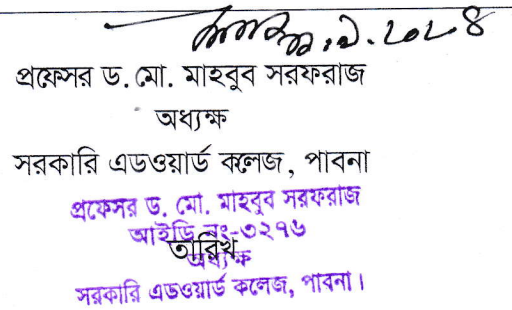 প্রফেসর ড. মো. মাহবুব সরফরাজ
অধ্যক্ষ
সরকারি এডওয়ার্ড কলেজ, পাবনা
প্রফেসর ড. মো. মাহবুব সরফরাজ
আইডি নং-৩২৭৬
তারিখ
অধ্যক্ষ
সরকারি এডওয়ার্ড কলেজ, পাবনা।